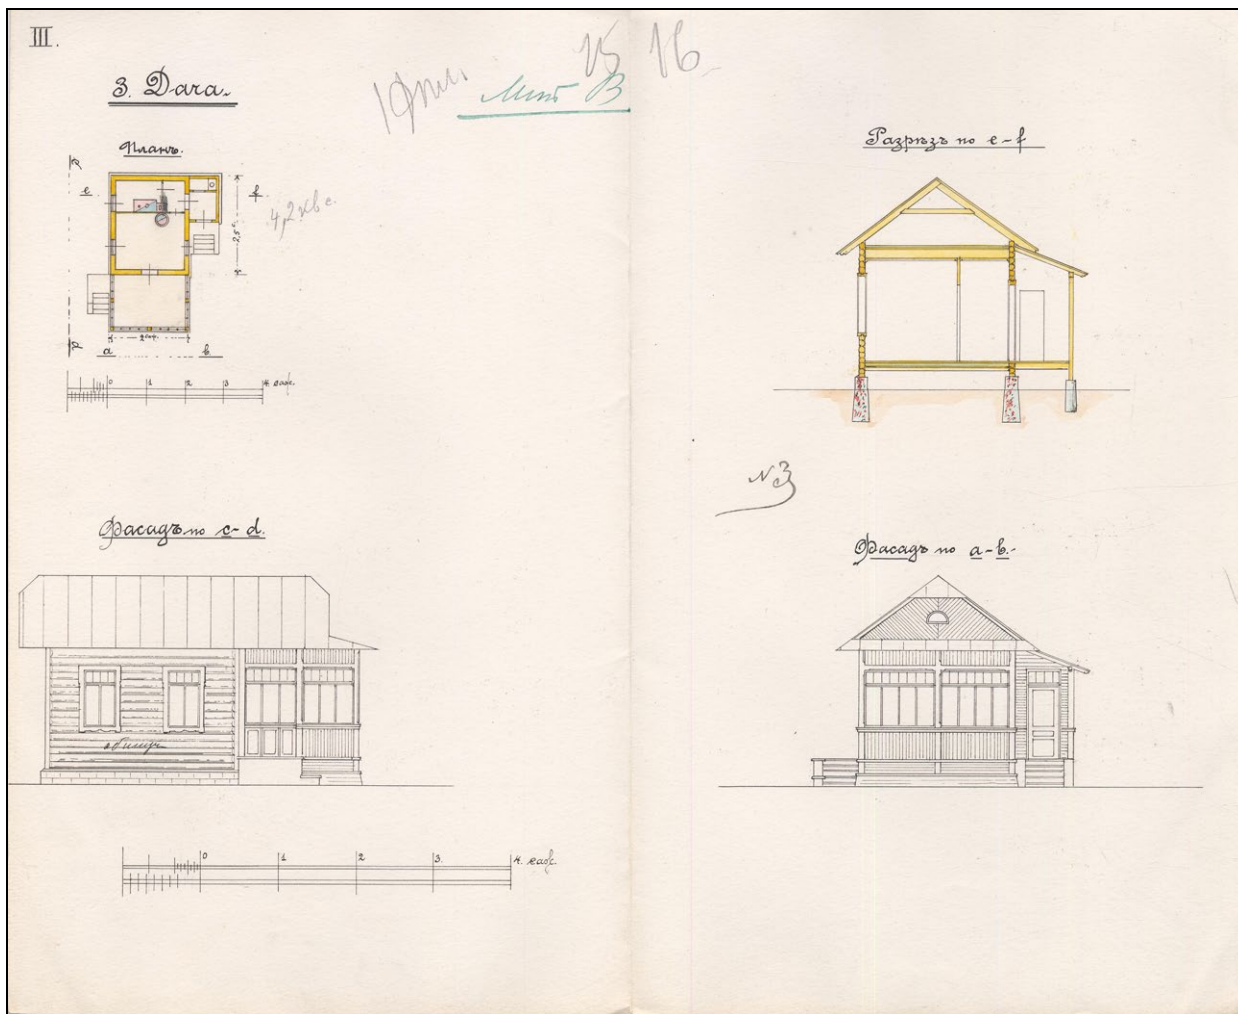 III.
3. Дача.
15 16
Лист В
Планъ.
e f
4,2 кв с.
2,5 с
2 саж.
a b
0 1 2 3 4 саж.
Разрѣзъ по e-f
№3
Фасадъ по c-d.
Фасадъ по a-b.
0 1 2 3. 4. саж.